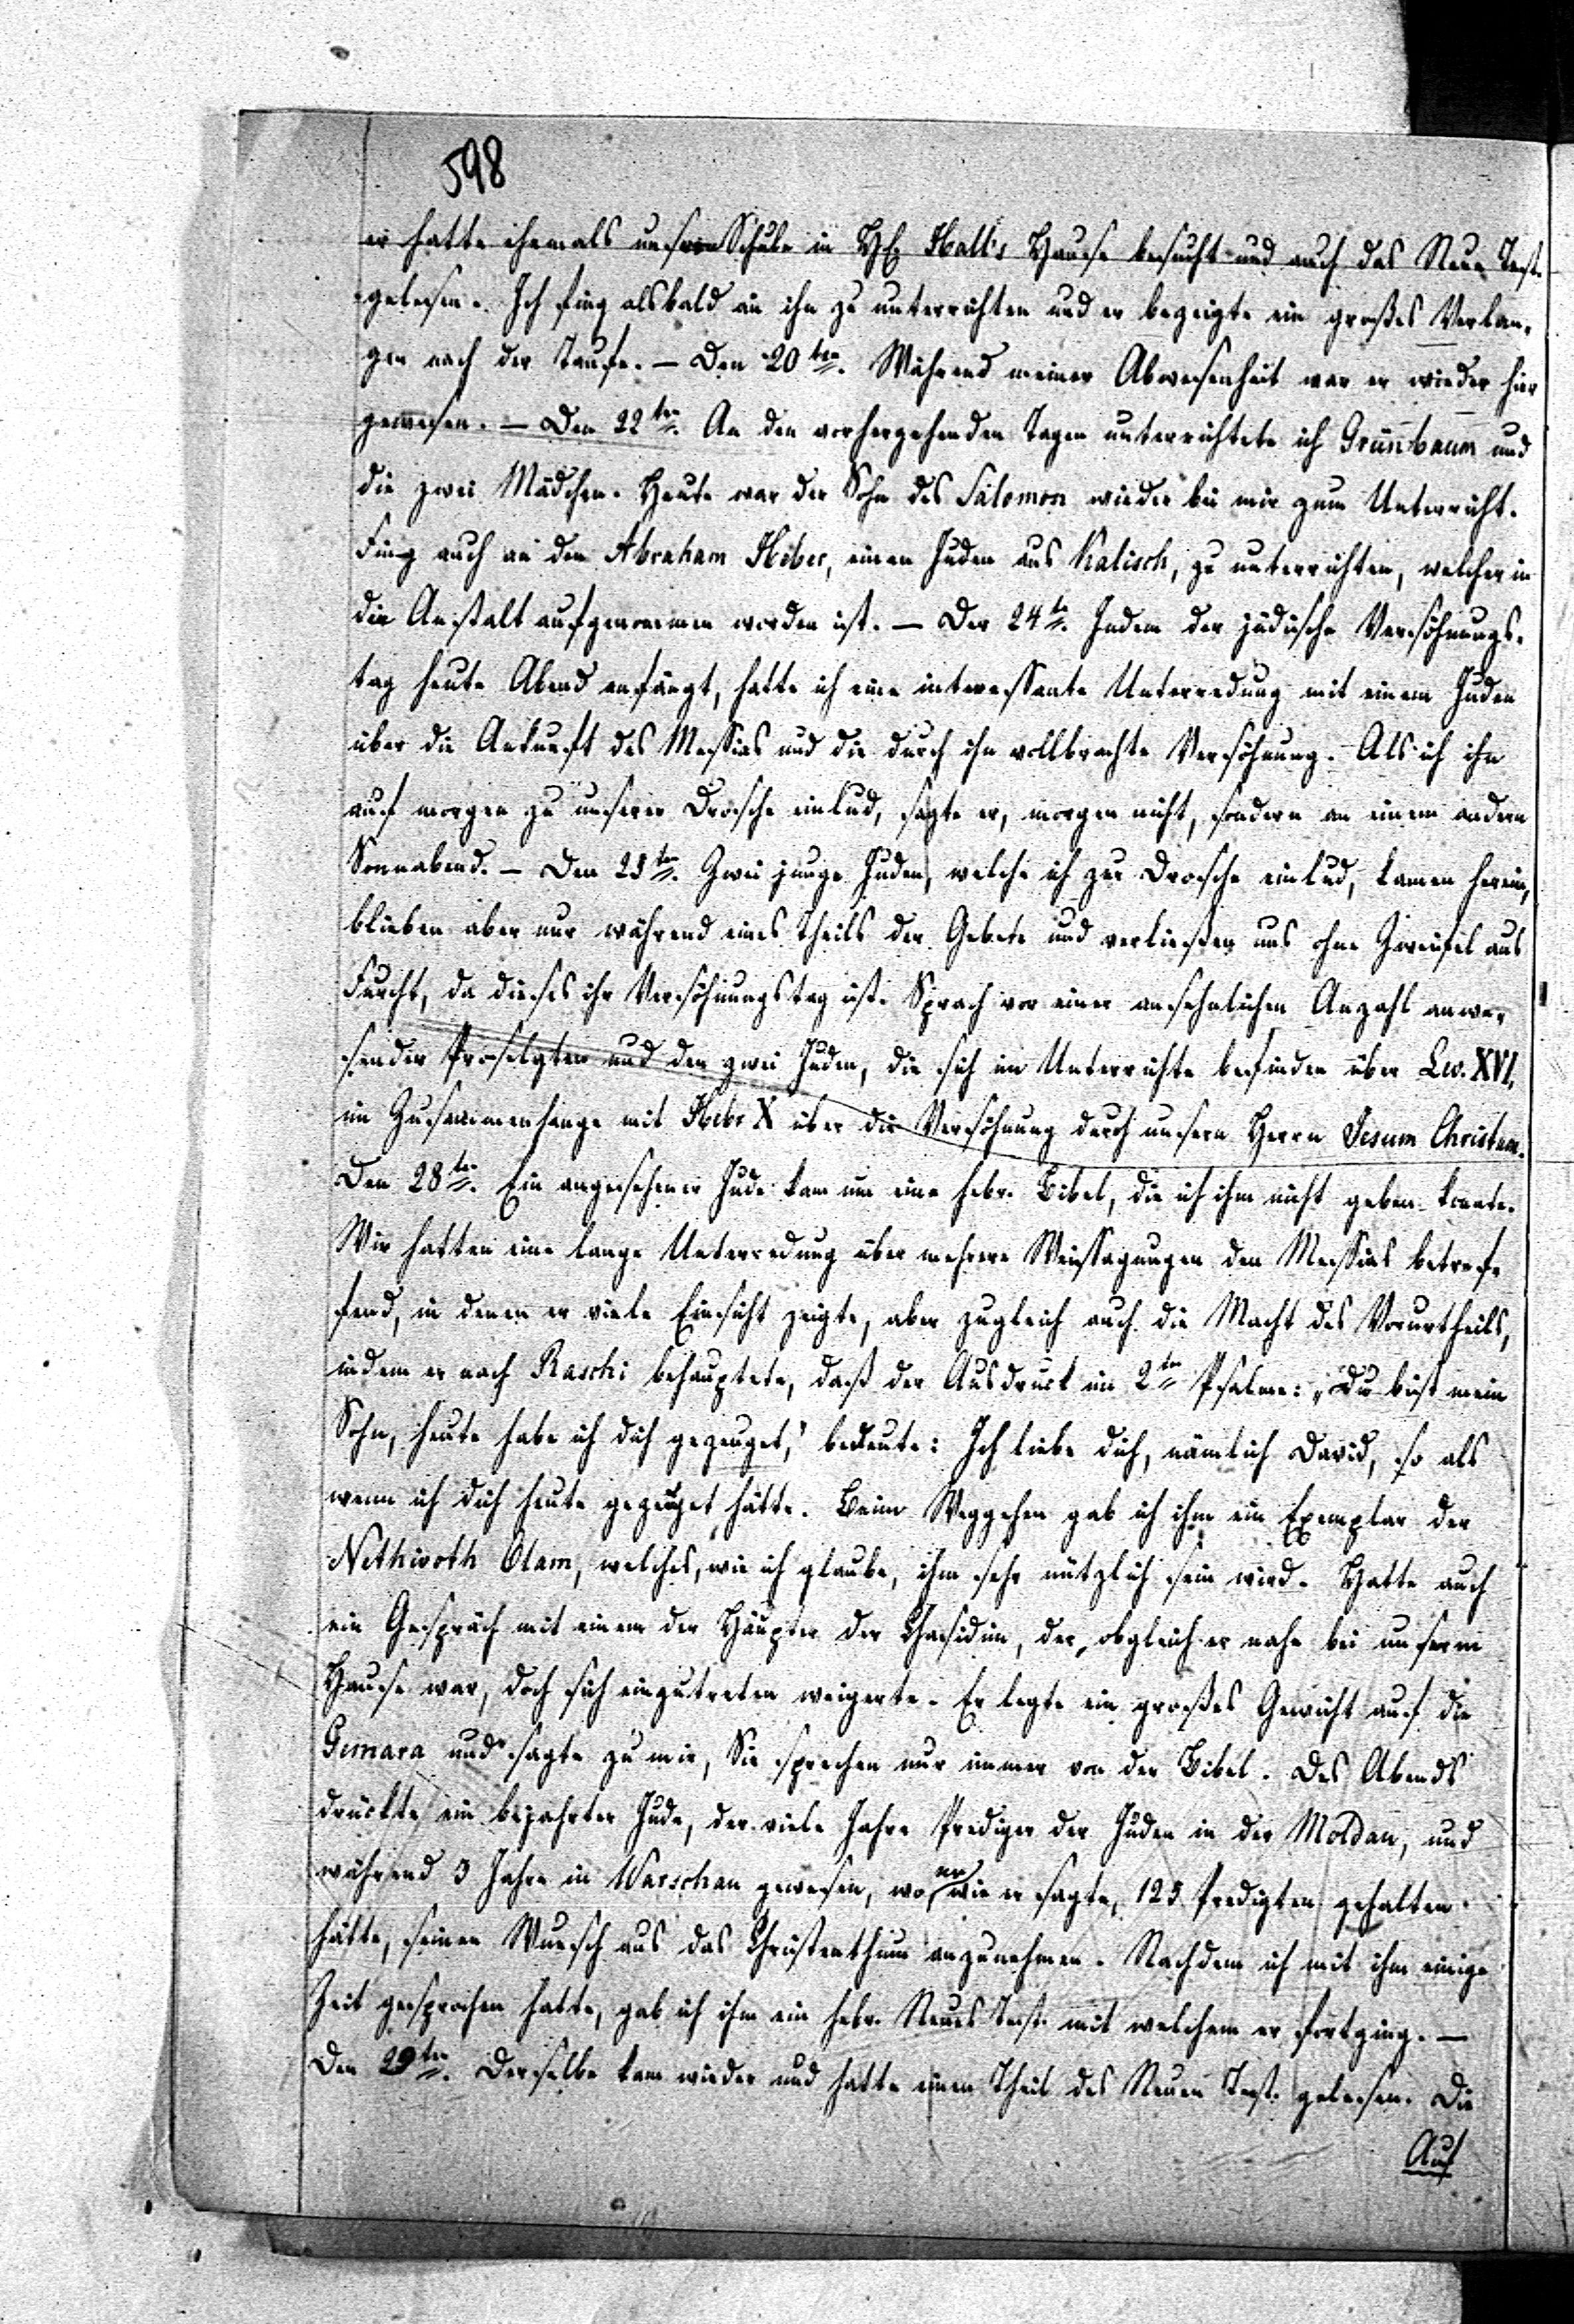 598
er hatte ehemals unsere Schule in HE Hall's Hause besucht und auch das Neue Test.
gelesen. Ich fing alsbald an ihn zu unterrichten und er bezeigte ein großes Verlan-
gen nach der Taufe. — Den 20ten. Während meiner Abwesenheit war er wieder hier
gewesen. — Den 22ten. An den vorhergehenden Tagen unterrichtete ich Grünbaum und
die zwei Mädchen. Heute war der Sohn des Salomon wieder bei mir zum Unterricht.
Fing auch an den Abraham Heber, einen Juden aus Kalisch, zu unterrichten, welcher in
die Anstalt aufgenommen worden ist. — Der 24te. Indem der jüdische Versöhnungs-
tag heute Abend anfängt, hatte ich eine interessante Unterredung mit einem Juden
über die Ankunft des Messias und die durch ihn vollbrachte Versöhnung. Als ich ihn
auf morgen zu unserer Drosche einlud, sagte er, morgen nicht, sondern an einem andern
Sonnabend. — Den 25ten. Zwei junge Juden, welche ich zur Drosche einlud, kamen herein,
blieben aber nur während eines Theils der Gebete und verließen uns ohne Zweifel aus
Furcht, da dieses ihr Versöhnungstag ist. Sprach vor einer ansehnlichen Anzahl anwe-
sender Proselyten und den zwei Juden, die sich im Unterrichte befinden über Lev. XVI,
im Zusammenhange mit Hebr X über die Versöhnung durch unsern Herrn Jesum Christum.
Den 28ten. Ein angesehener Jude kam um eine hebr. Bibel, die ich ihm nicht geben konnte.
Wir hatten eine lange Unterredung über mehrere Weissagungen den Messias betref-
fend, in denen er viele Einsicht zeigte, aber zugleich auch die Macht des Vorurtheils,
indem er nach Raschi behauptete, daß der Ausdruck im 2ten Psalme: „Du bist mein
Sohn, heute habe ich dich gezeuget," bedeute: Ich liebe dich, nämlich David, so als
wenn ich dich heute gezeuget hätte. Beim Weggehen gab ich ihm ein Exemplar der
Nethivoth Olam, welches, wie ich glaube, ihm sehr nützlich sein wird. Hatte auch
ein Gespräch mit einem der Häupter der Chasidim, der, obgleich er nahe bei unserm
Hause war, doch sich einzutreten weigerte. Er legte ein großes Gewicht auf die
Gemara und sagte zu mir, Sie sprechen nur immer von der Bibel. Des Abends
drückte ein bejahrter Jude, der viele Jahre Prediger der Juden in der Moldau, und
während 3 Jahre in Warschau gewesen, wo er, wie er sagte, 125 Predigten gehalten
hätte, seinen Wunsch aus das Christenthum anzunehmen. Nachdem ich mit ihm einige
Zeit gesprochen hatte, gab ich ihm ein hebr. Neues Test. mit welchem er fortging. —
Den 29ten. Derselbe kam wieder und hatte einen Theil des Neuen Test. gelesen. Die
Auf